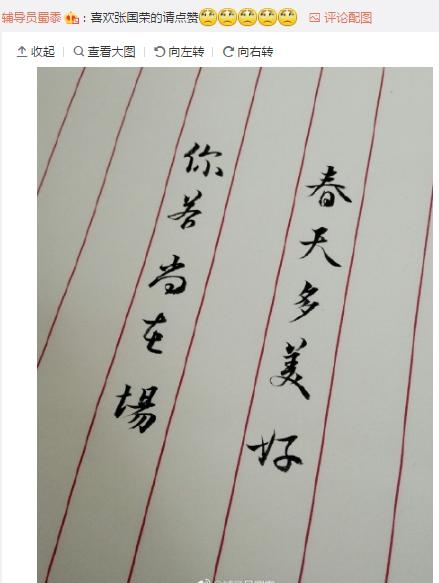 辅导员蜀黍：喜欢张国荣的请点赞 评论配图
收起 查看大图 向左转 向右转
春天多美好
你若尚在場